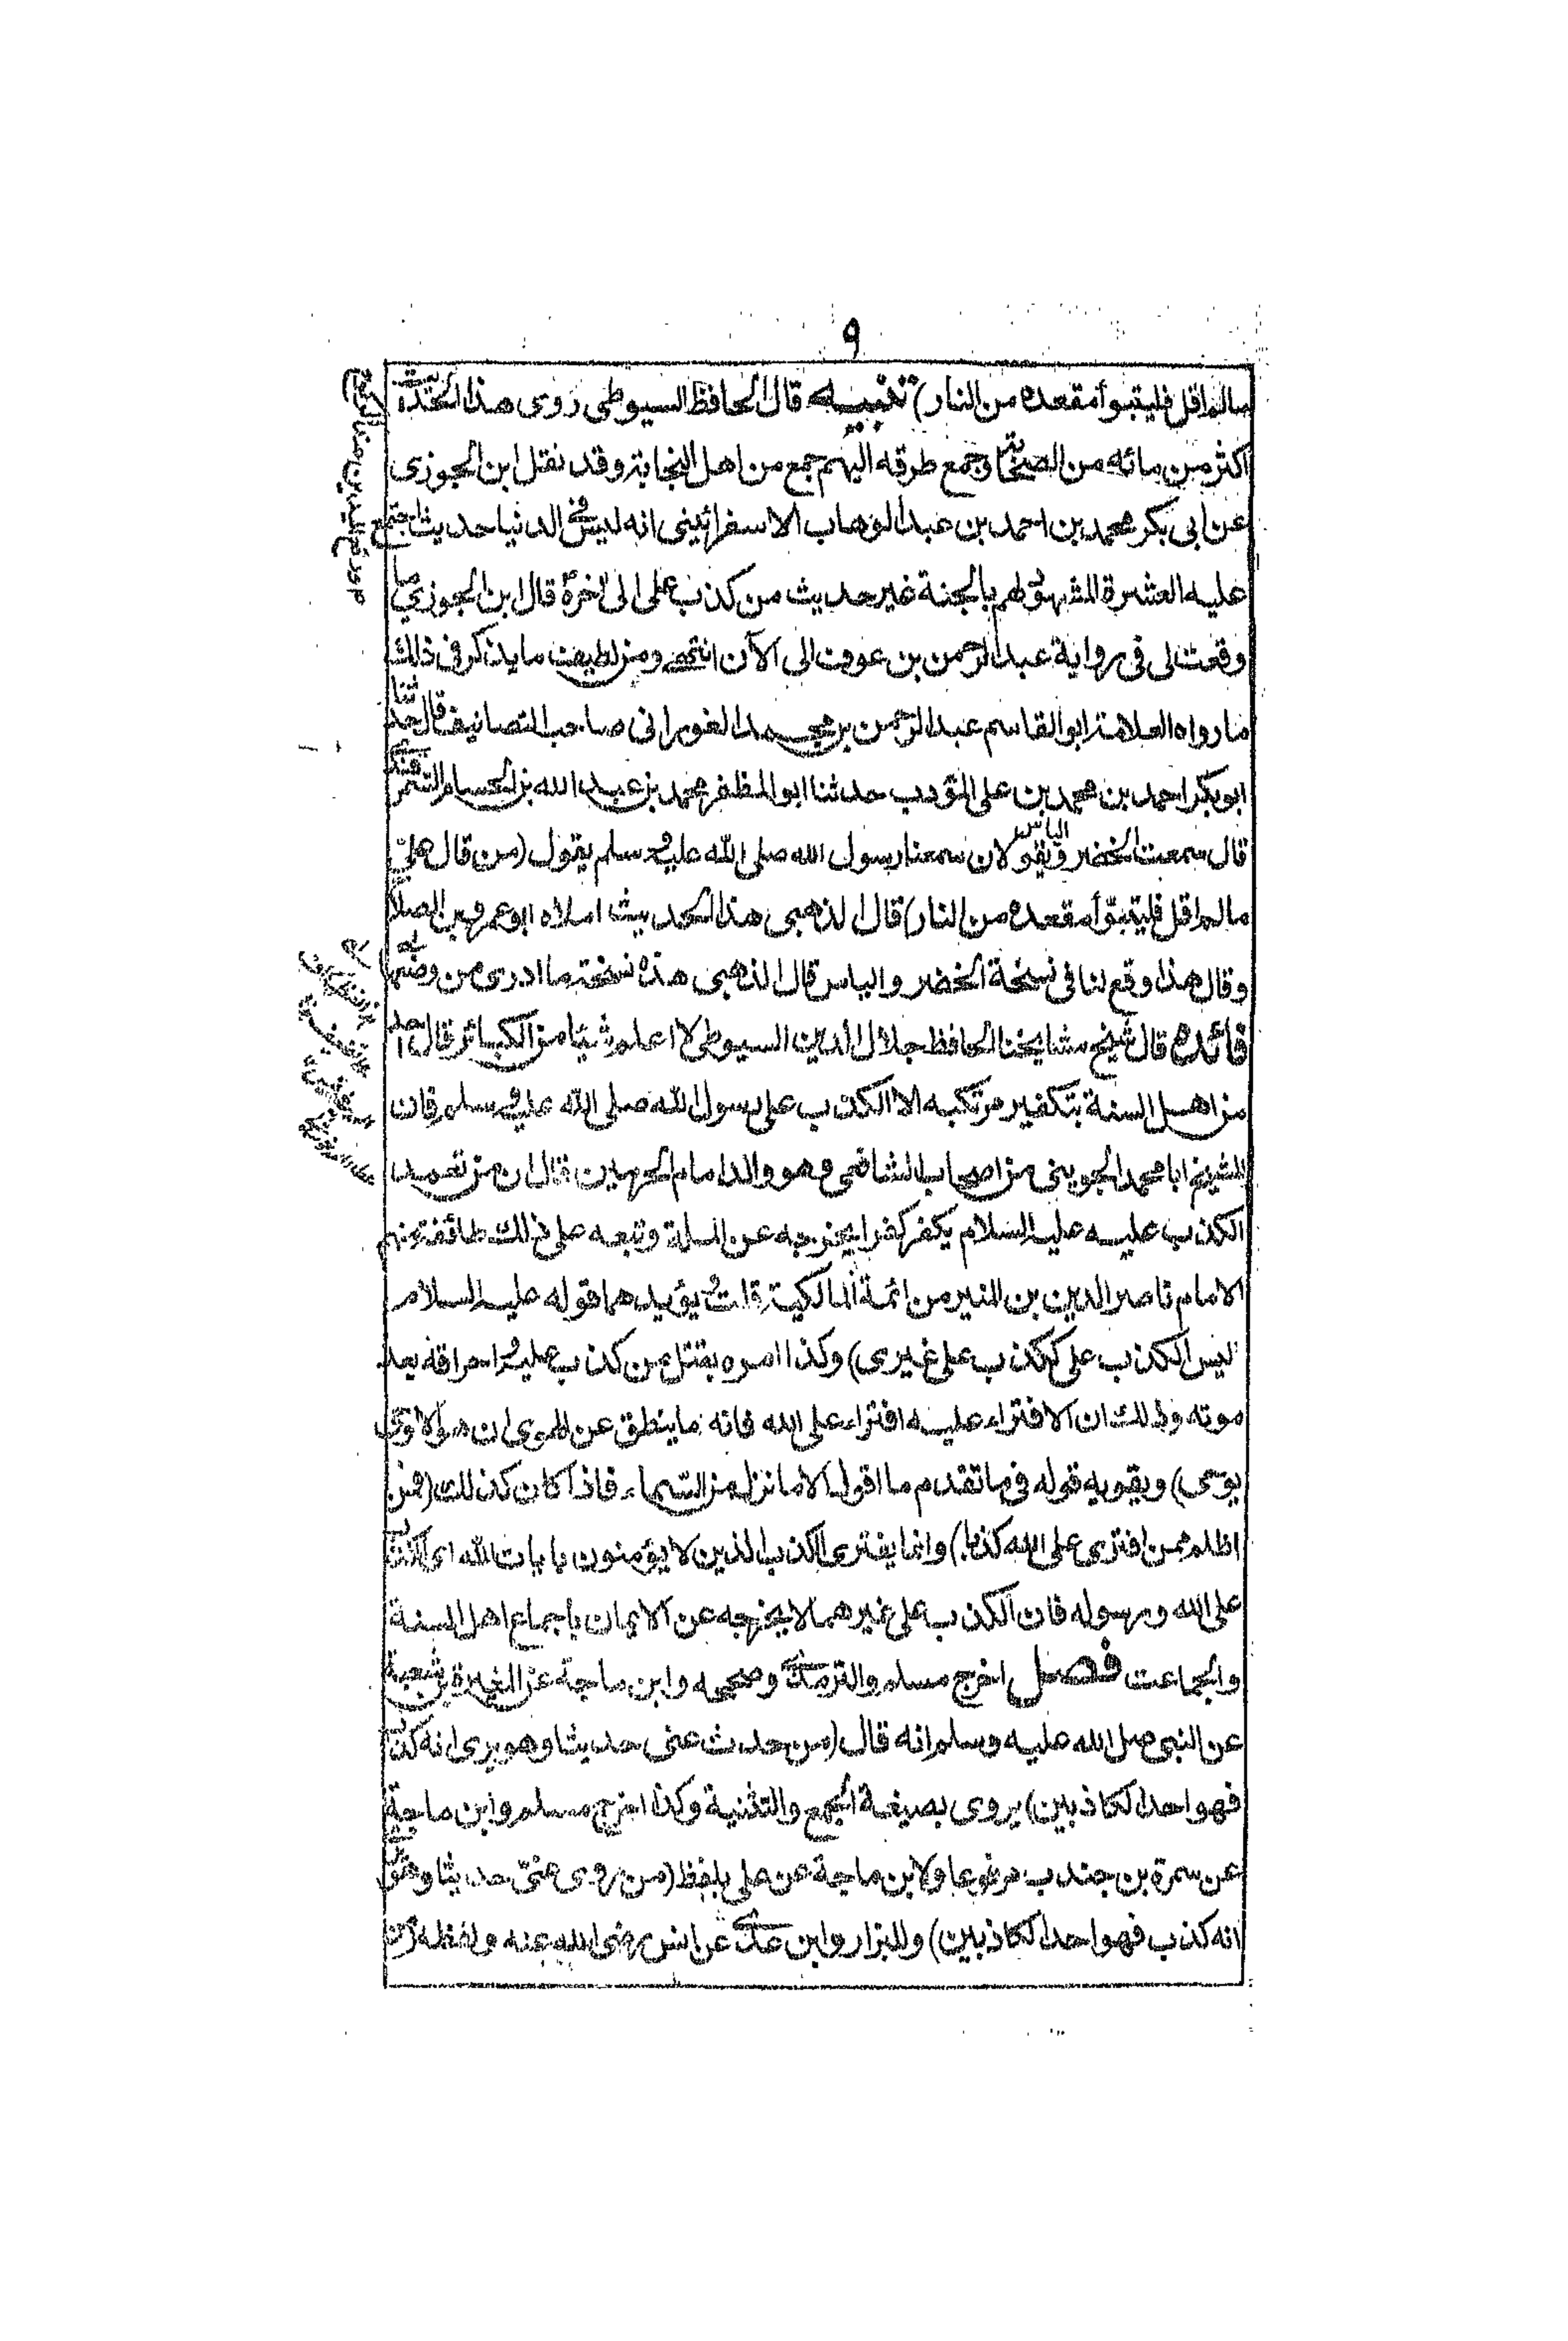 9
مالم اقل فليتبوأ مقعده من النار) تنبيه قال الحافظ السيوطى روى هذا الحديث
اكثر من مائه من الصحابة وجمع طرقه اليهم جمع من اهل النجابة وقد نقل ابن الجوزى
عن ابى بكر محمد بن احمد بن عبد الوهاب الاسفرائينى انه ليس فى الدنيا حديث اجتمع
عليه العشرة المشهود لهم بالجنة غير حديث من كذب على الى اخره قال ابن الجوزى ما
وقعت لى فى رواية عبد الرحمن بن عوف الى الآن انتهى ومن لطيف ما يذكر فى ذلك
ما رواه العلامة ابو القاسم عبد الرحمن بن محمد الغورانى صاحب التصانيف قال حدثنا
ابو بكر احمد بن محمد بن على المؤدب حدثنا ابو المظفر محمد بن عبد الله بن الحسام السمرقندى
قال سمعت الخضر والياس يقولان سمعنا رسول الله صلى الله عليه وسلم يقول (من قال على
مالم اقل فليتبوّأ مقعده من النار) قال الذهبى هذا الحديث املاه ابو عمرو بن الصلاح
وقال هذا وقع لنا فى نسخة الخضر والياس قال الذهبى هذه نسخة ما ادرى من وضعها
فائده قال شيخ مشايخنا الحافظ جلال الدين السيوطى لا اعلم شيئا من الكبائر قال احد
من اهل السنة بتكفير مرتكبه الا الكذب على رسول الله صلى الله عليه وسلم فان
الشيخ ابا محمد الجوينى من اصحاب الشافعى وهو والد امام الحرمين قال ان من تعمد
الكذب عليه عليه السلام يكفر كفرا يخرجه عن الملة وتبعه على ذلك طائفة منهم
الامام ناصر الدين بن المنير من ائمة المالكية قلت ويؤيدهما قوله عليه السلام
ليس الكذب على ككذب على غيرى) وكذا امره بقتل من كذب عليه واحراقه بعد
موته وذلك ان الافتراء عليه افتراء على الله فانه ما ينطق عن الهوى ان هو الا وحى
يوحى) ويقويه قوله فى ما تقدم ما اقول الا ما نزل من السماء فاذا كان كذلك (فمن
اظلم ممن افترى على الله كذبا) وانما يفترى الكذب الذين لا يؤمنون بايات الله اى الكذب
على الله ورسوله فان الكذب على غيرهما لا يخرجه عن الايمان باجماع اهل السنة
والجماعت فصل اخرج مسلم والترمذى وصححه وابن ماجة عن المغيرة بن شعبة
عن النبى صلى الله عليه وسلم انه قال (من حدث عنى حديثا وهو يرى انه كذب
فهو احد الكاذبين) يروى بصيغة الجمع والتثنية وكذا اخرج مسلم وابن ماجة
عن سمرة بن جندب مرفوعا ولابن ماجة عن على بلفظ (من روى عنى حديثا وهو يرى
انه كذب فهو احد الكاذبين) وللبزار وابن عدى عن انس رضى الله عنه ولفظه من